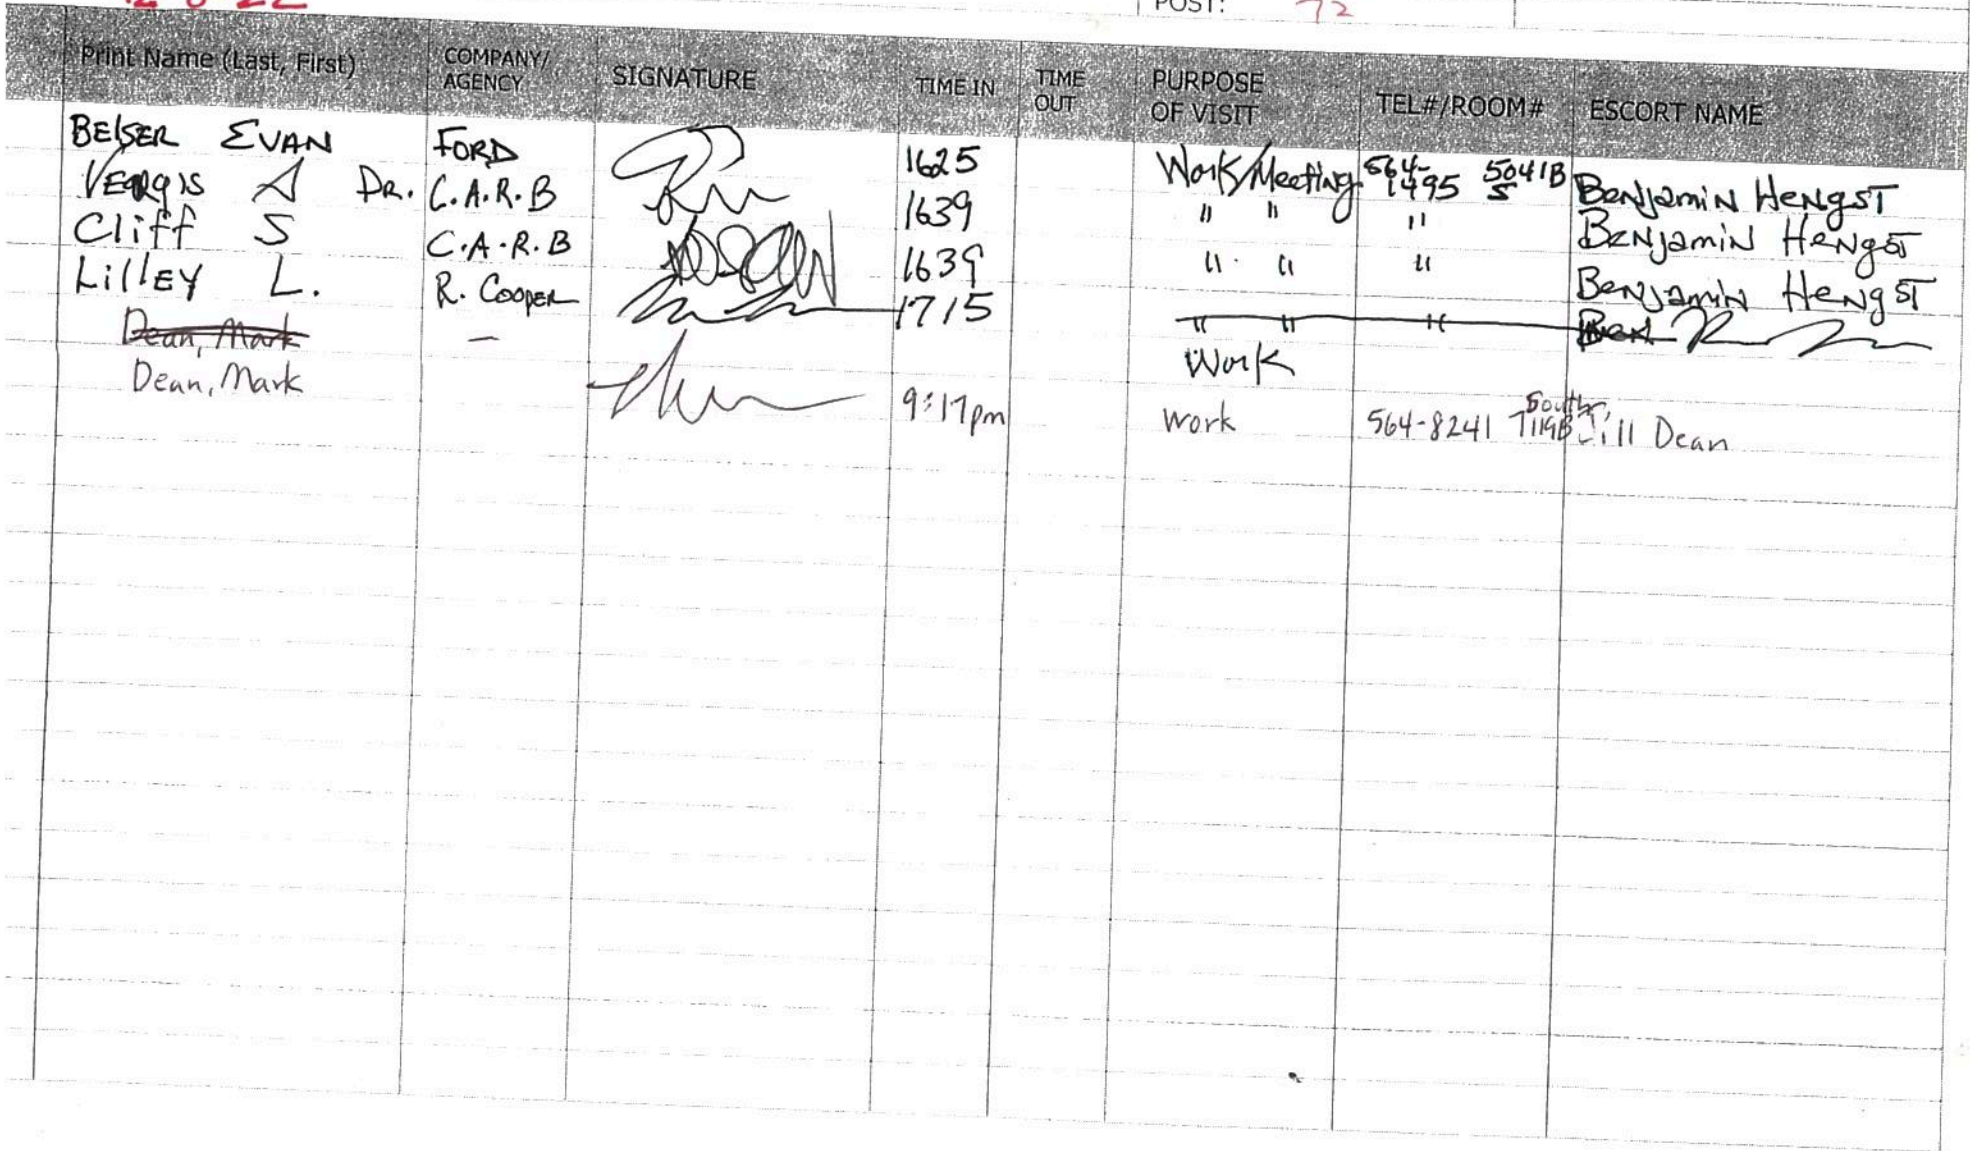 POST: 72
Print Name (Last, First) COMPANY/ AGENCY SIGNATURE TIME IN TIME OUT PURPOSE OF VISIT TEL#/ROOM# ESCORT NAME
BELSER EVAN FORD 1625 Work/Meeting 564-1495 5041B S Benjamin Hengst
A DR. C.A.R.B 1639 " " " Benjamin Hengst
Cliff S C.A.R.B 1639 " " " Benjamin Hengst
Lilley L. R. Cooper 1715 " " "
Dean, Mark — Work
Dean, Mark 9:17pm work 564-8241 South, 7119B Jill Dean